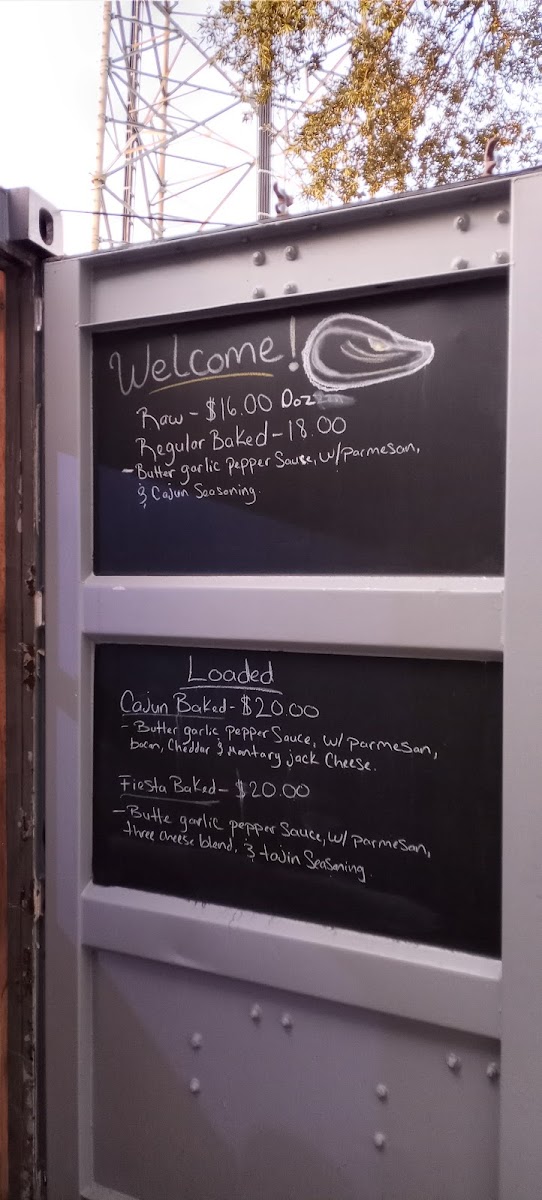 Welcome!
Raw - $16.00 Doz
Regular Baked - 18.00
- Butter garlic pepper Sause, w/parmesan,
& Cajun Seasoning.
Loaded
Cajun Baked - $20.00
- Butter garlic pepper Sauce, w/ parmesan,
bacon, Cheddar & Montary jack Cheese.
Fiesta Baked - $20.00
- Butte garlic pepper Sauce, w/ parmesan,
three cheese blend, & tajin Seasoning.